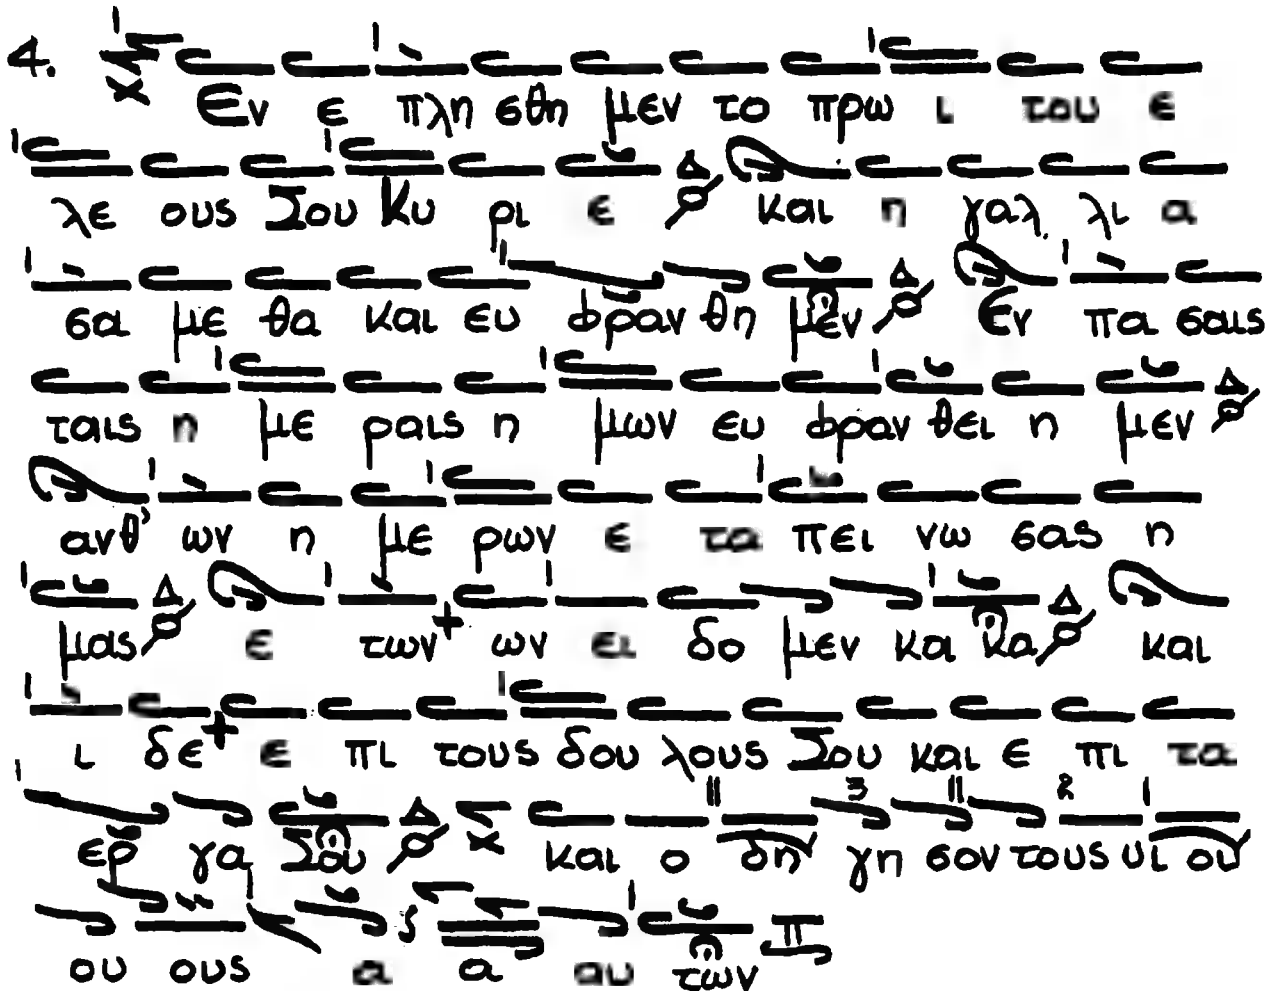 4. Εν ε πλη σθη μεν το πρω ι του ε
λε ους Σου Κυ ρι ε και η γαλ λι α
σα με θα και ευ φραν θη μεν Εν πα σαις
ταις η με ραις η μων ευ φραν θει η μεν
ανθ' ων η με ρων ε τα πει νω σας η
μας ε των ων ει δο μεν κα κα και
ι δε ε πι τους δου λους Σου και ε πι τα
ερ γα Σου και ο δη γη σον τους υι ου
ου ους α α αυ των